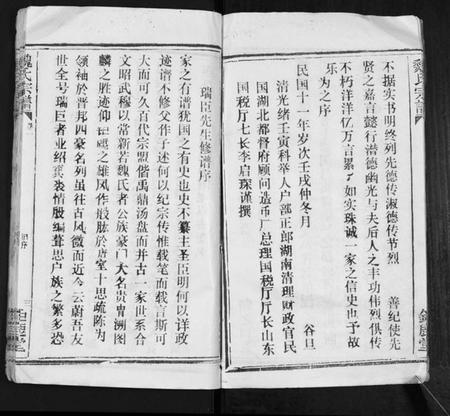 魏氏宗譜
不据实书明终列先德传淑德传节烈
善纪使先
贤之嘉言懿行潜德幽光与夫后人之丰功伟烈俱传
不朽洋洋亿万言累了如实珠诚一家之信史也予故
乐为之序
民国十一年岁次壬戌仲冬月
谷旦
清光绪壬寅科举人户部正郎湖南清理财政官民
国湖北都督府顾问造币厂总理国税厅厅长山东
国税厅七长李启琛谨撰
瑞臣先生修谱序
家之有谱犹国之有史也史不纂主圣臣明何以详政
迹谱不修父作子述何以纪宗传惟载笔而载言斯可
大而可久百代宗盟偕禹鼎汤盘而并古一家世系合
文昭武穆以常新若魏氏者公族豪门大名贵胄溯图
麟之胜迹仰
之雄风作殷肱於唐室十思疏陈为
领袖於晋邦四豪名列虽往古风微而近今云蔚吾友
世全号瑞臣者业绍裘情殷编葺思户族之繁多恐
魏氏宗譜
序
鉅鹿堂